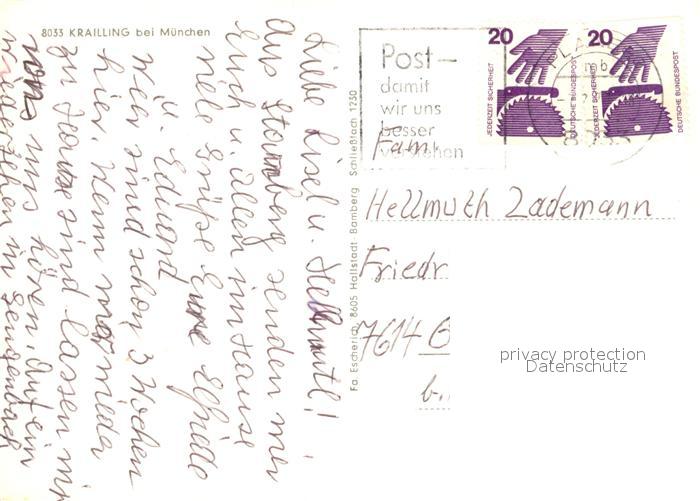 8033 KRAILLING bei München
Liebe Lisel u. Hellmuth!
Aus Starnberg senden wir
Euch u. allen im Hause
viele Grüße Eure Elfriede
u. Eduard
wir sind schon 3 Wochen
hier. Wenn wir wieder
zu Hause sind lassen wir
von uns hören. Auf ein
Wiedersehen in Gengenbach
Fa. Escherich, 8605 Hallstadt Bamberg Schließfach 1230
Post-
damit
wir uns
besser
verstehen
20
JEDERZEIT SICHERHEIT
DEUTSCHE BUNDESPOST
20
JEDERZEIT SICHERHEIT
DEUTSCHE BUNDESPOST
Fam.
Hellmuth Zademann
Friedr
7614 G
b.
privacy protection
Datenschutz